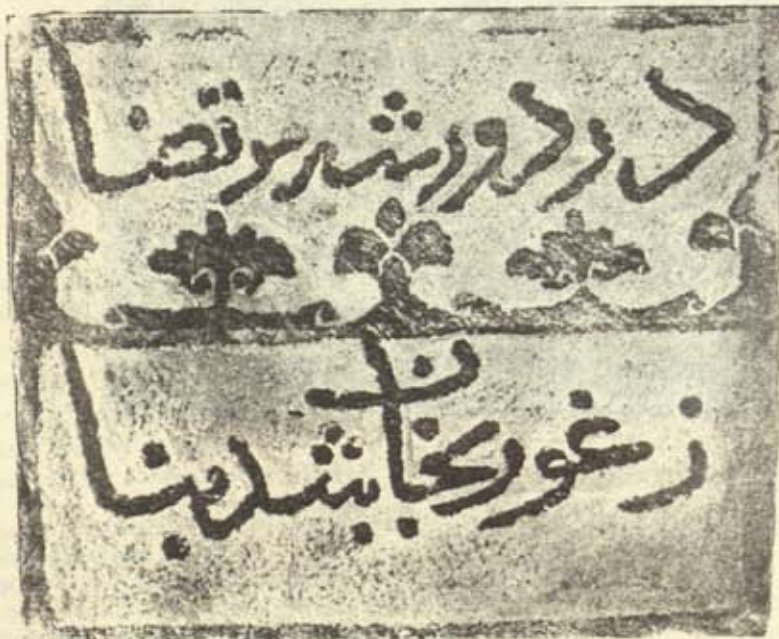 در دور شه مرتضا
ز غوریخان بشد بنا